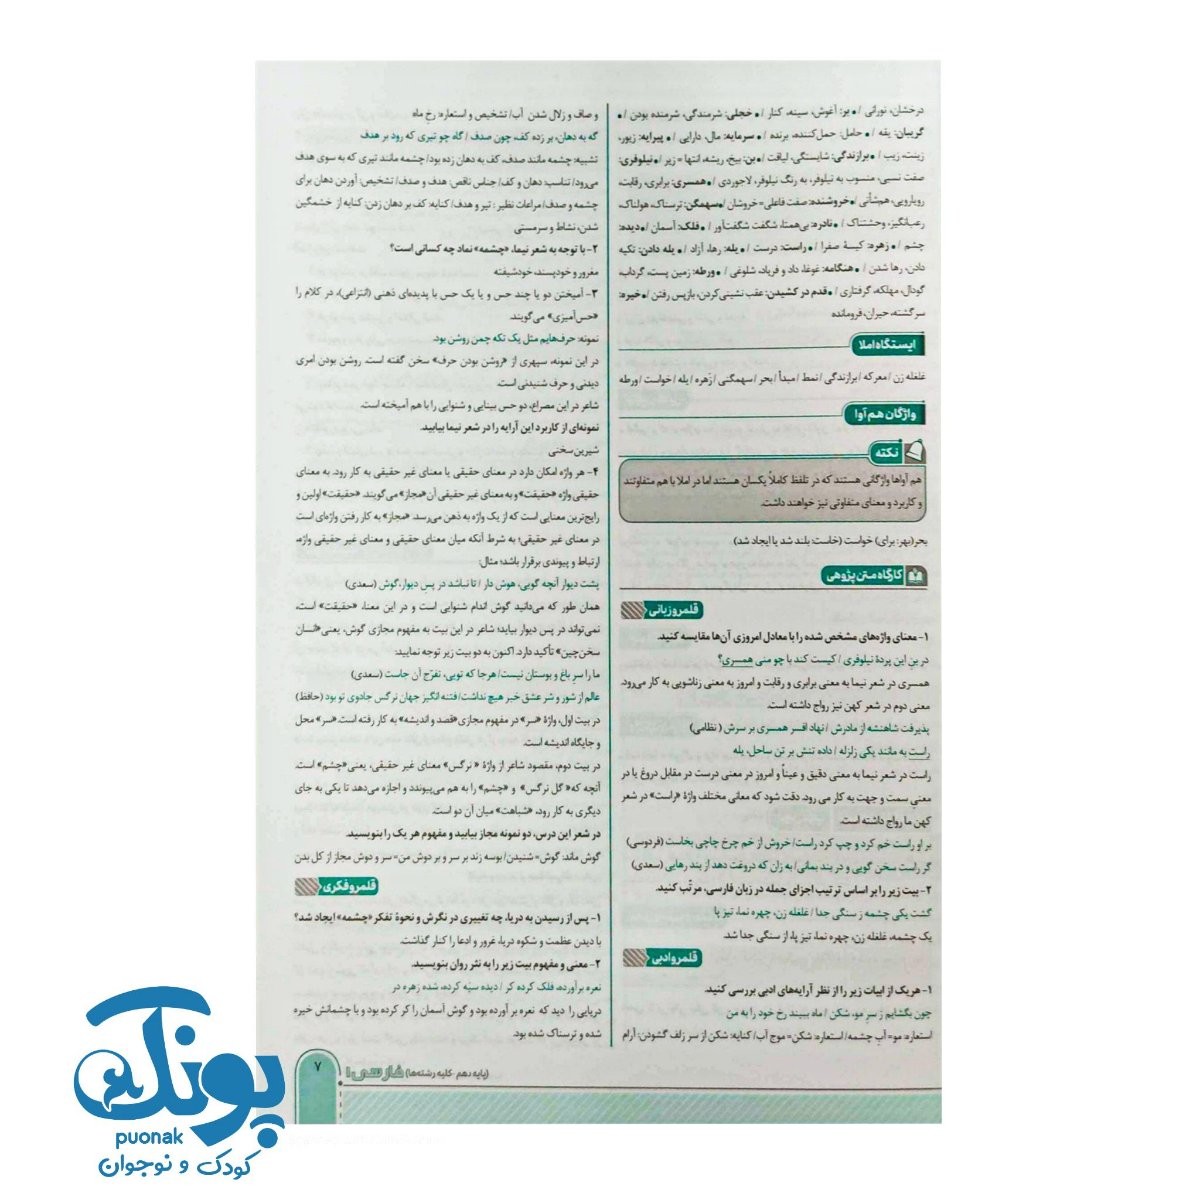 درخشان، نورانی / • بر: آغوش، سینه، کنار / • خجلی: شرمندگی، شرمنده بودن / •
گریبان: یقه / • حامل: حمل‌کننده، برنده / • سرمایه: مال، دارایی / • پیرایه: زیور،
زینت، زیب / • برازندگی: شایستگی، لیاقت / • بن: بیخ، ریشه، انتها = زیر / • نیلوفری:
صفت نسبی، منسوب به نیلوفر، به رنگ نیلوفر، لاجوردی / • همسری: برابری، رقابت،
رویارویی، هم‌شأنی / • خروشنده: صفت فاعلی = خروشان / • سهمگن: ترسناک، هولناک،
رعب‌انگیز، وحشتناک / • نادره: بی‌همتا، شگفت شگفت‌آور / • فلک: آسمان / • دیده:
چشم / • زهره: کیسهٔ صفرا / • راست: درست / • یله: رها، آزاد / • یله دادن: تکیه
دادن، رها شدن / • هنگامه: غوغا، داد و فریاد، شلوغی / • ورطه: زمین پست، گرداب،
گودال، مهلکه، گرفتاری / • قدم در کشیدن: عقب نشینی کردن، بازپس رفتن / • خیره:
سرگشته، حیران، فرومانده
ایستگاه املا
غلغله زن / معرکه / برازندگی / نمط / مبدأ / بحر / سهمگنی / زَهره / یله / خواست / ورطه
واژگان هم‌آوا
نکته
هم آواها واژگانی هستند که در تلفظ کاملاً یکسان هستند اما در املا با هم متفاوتند
و کاربرد و معنای متفاوتی نیز خواهند داشت.
بحر(بهر: برای) خواست (خاست: بلند شد یا ایجاد شد).
کارگاه متن پژوهی
قلمرو زبانی
۱- معنای واژه‌های مشخص شده را با معادل امروزی آن‌ها مقایسه کنید.
در بن این پردهٔ نیلوفری / کیست کند با چو منی همسری؟
همسری در شعر نیما به معنی برابری و رقابت و امروز به معنی زناشویی به کار می‌رود.
معنی دوم در شعر کهن نیز رواج داشته است.
پذیرفت شاهنشه از مادرش / نهاد افسر همسری بر سرش (نظامی)
راست به مانند یکی زلزله / داده تنش بر تن ساحل، یله
راست در شعر نیما به معنی دقیق و عیناً و امروز در معنی درست در مقابل دروغ یا در
معنی سمت و جهت به کار می رود. دقت شود که معانی مختلف واژهٔ «راست» در شعر
کهن ما رواج داشته است.
بر او راست خم کرد و چپ کرد راست/ خروش از خم چرخ چاچی بخاست (فردوسی)
گر راست سخن گویی و در بند بمانی/ به زان که دروغت دهد از بند رهایی (سعدی)
۲- بیت زیر را بر اساس ترتیب اجزای جمله در زبان فارسی، مرتّب کنید.
گشت یکی چشمه ز سنگی جدا / غلغله زن، چهره نما، تیز پا
یک چشمه، غلغله زن، چهره نما، تیز پا، از سنگی جدا شد.
قلمرو ادبی
۱- هر یک از ابیات زیر را از نظر آرایه‌های ادبی بررسی کنید.
چون بگشایم ز سر مو، شکن / ماه ببیند رخ خود را به من
استعاره: مو= آب چشمه/ استعاره: شکن= موج آب/ کنایه: شکن از سر زلف گشودن: آرام
و صاف و زلال شدن آب/ تشخیص و استعاره: رخ ماه
گه به دهان، بر زده کف، چون صدف / گاه چو تیری که رود بر هدف
تشبیه: چشمه مانند صدف، کف به دهان زده بود/ چشمه مانند تیری که به سوی هدف
می‌رود/ تناسب: دهان و کف/ جناس ناقص: هدف و صدف/ تشخیص: آوردن دهان برای
چشمه و صدف/ مراعات نظیر : تیر و هدف/ کنایه: کف بر دهان زدن: کنایه از خشمگین
شدن، نشاط و سرمستی
۲- با توجه به شعر نیما، «چشمه» نماد چه کسانی است؟
مغرور و خودپسند، خودشیفته
۳- آمیختن دو یا چند حس و یا یک حس با پدیده‌ای ذهنی (انتزاعی)، در کلام را
«حس‌آمیزی» می‌گویند.
نمونه: حرف‌هایم مثل یک تکه چمن روشن بود.
در این نمونه، سپهری از «روشن بودن حرف» سخن گفته است. روشن بودن امری
دیدنی و حرف شنیدنی است.
شاعر در این مصراع، دو حس بینایی و شنوایی را با هم آمیخته است.
نمونه‌ای از کاربرد این آرایه را در شعر نیما بیابید.
شیرین‌سخنی
۴- هر واژه امکان دارد در معنای حقیقی یا معنای غیر حقیقی به کار رود. به معنای
حقیقی واژه «حقیقت» و به معنای غیر حقیقی آن «مجاز» می‌گویند. «حقیقت» اولین و
رایج‌ترین معنایی است که از یک واژه به ذهن می‌رسد. «مجاز» به کار رفتن واژه‌ای است
در معنای غیر حقیقی؛ به شرط آنکه میان معنای حقیقی و معنای غیر حقیقی واژه،
ارتباط و پیوندی برقرار باشد؛ مثال:
پشت دیوار آنچه گویی، هوش دار / تا نباشد در پس دیوار، گوش (سعدی)
همان طور که می‌دانید گوش اندام شنوایی است و در این معنا، «حقیقت» است،
نمی‌تواند در پس دیوار بیاید؛ شاعر در این بیت به مفهوم مجازی گوش، یعنی «انسان
سخن‌چین» تأکید دارد. اکنون به دو بیت زیر توجه نمایید:
ما را سر باغ و بوستان نیست/ هر جا که تویی، تفرّج آن جاست (سعدی)
عالم از شور و شر عشق خبر هیچ نداشت/ فتنه انگیز جهان نرگس جادوی تو بود (حافظ)
در بیت اول، واژهٔ «سر» در مفهوم مجازی «قصد و اندیشه» به کار رفته است. «سر» محل
و جایگاه اندیشه است.
در بیت دوم، مقصود شاعر از واژهٔ « نرگس» معنای غیر حقیقی، یعنی «چشم» است.
آنچه که« گل نرگس » و «چشم» را به هم می‌پیوندد و اجازه می‌دهد تا یکی به جای
دیگری به کار رود، «شباهت» میان آن دو است.
در شعر این درس، دو نمونه مجاز بیابید و مفهوم هر یک را بنویسید.
گوش ماند: گوش= شنیدن/ بوسه زند بر سر و بر دوش من= سر و دوش مجاز از کل بدن
قلمرو فکری
۱- پس از رسیدن به دریا، چه تغییری در نگرش و نحوهٔ تفکر «چشمه» ایجاد شد؟
با دیدن عظمت و شکوه دریا، غرور و ادعا را کنار گذاشت.
۲- معنی و مفهوم بیت زیر را به نثر روان بنویسید.
نعره برآورده، فلک کرده کر / دیده سیه کرده، شده زهره در
دریایی را دید که نعره بر آورده بود و گوش آسمان را کر کرده بود و با چشمانش خیره
شده و ترسناک شده بود.
۷
فارسی ۱ (پایه دهم - کلیه رشته‌ها)
پونک
puonak
کودک و نوجوان